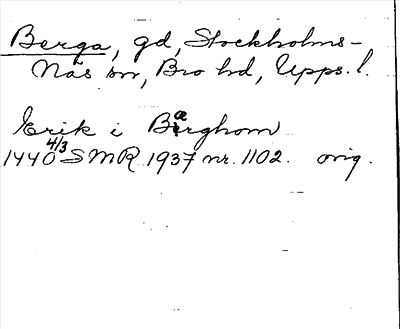 Berga, gd, Stockholms-
Näs sn, Bro hd, Upps. l.
Erik i Bærghom
1440 4/3 SMR 1937 nr. 1102. orig.